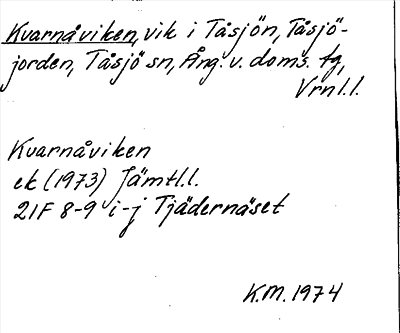 Kvarnåviken, vik i Tåsjön, Tåsjö-
jorden, Tåsjö sn, Ång. v. doms. tg,
Vrnl.l.
Kvarnåviken
ek (1973) Jämtl.l.
21F 8-9 i-j Tjädernäset
K.M. 1974